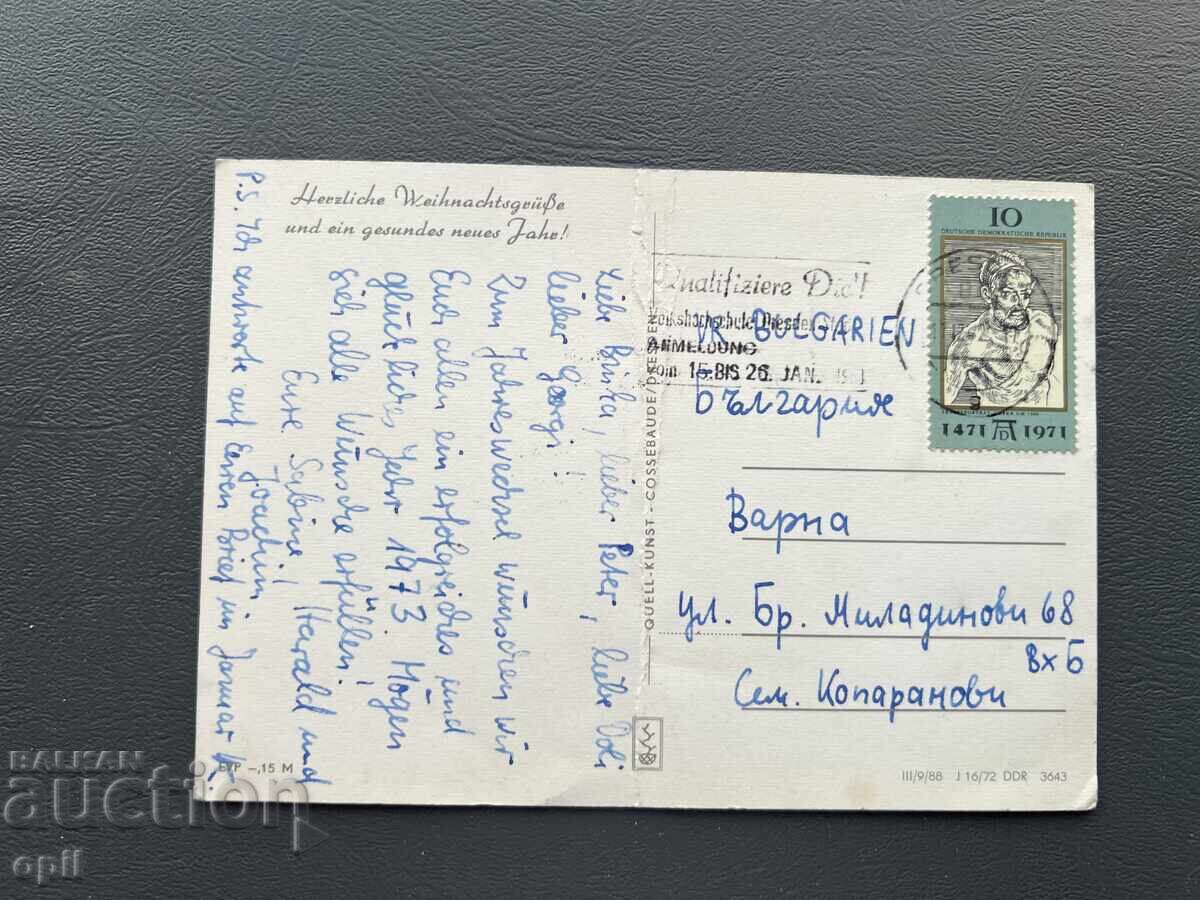 Herzliche Weihnachtsgrüße
und ein gesundes neues Jahr!
Liebe Brinka, lieber Peter, liebe Doli
lieber Georgi!
Zum Jahreswechsel wünschen wir
Euch allen ein erfolgreiches und
glückliches Jahr 1973. Mögen
sich alle Wünsche erfüllen!
Eure Sabine, Harald und
Joachim
P.S. Ich antworte auf Euren Brief im Januar
EVP –,15 M
QUELL-KUNST · COSSEBAUDE/DRESDEN
Qualifiziere Dich!
Volkshochschule Dresden
ANMELDUNG
vom 15. BIS 26. JAN.
10
DEUTSCHE DEMOKRATISCHE REPUBLIK
1471 AD 1971
VR BULGARIEN
България
Варна
ул. Бр. Миладинови 68
вх Б
Сем. Копаранови
III/9/88 J 16/72 DDR 3643
BALKAN
auction
opll